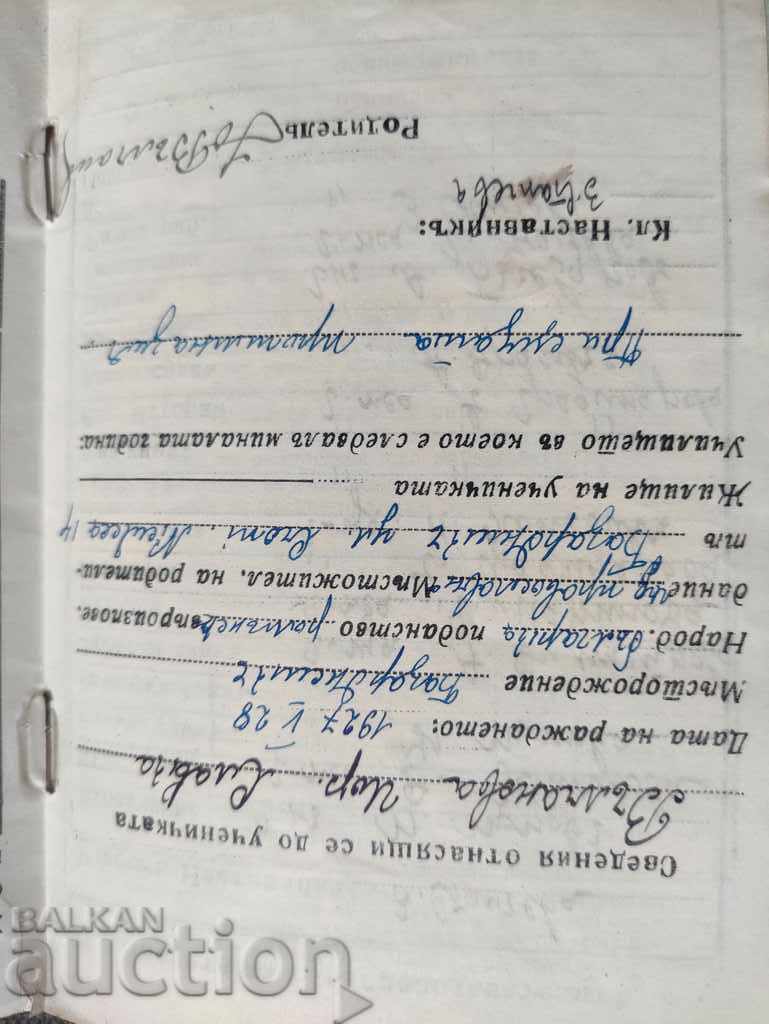 Сведения отнасящи се до ученичката
Вълчанова Иор. Славка
Дата на раждането: 1927 V 28
Мѣсторождение Базарджикъ
Народ. българка поданство ромънско вѣроизпове-
дание пр. православно Мѣстожител. на родители-
тѣ Базарджикъ ул. 14
Жилище на ученичката
Училището въ което е следвалъ миналата година:
При същата прогимназия
Кл. Наставникъ:
Родитель
BALKAN
auction